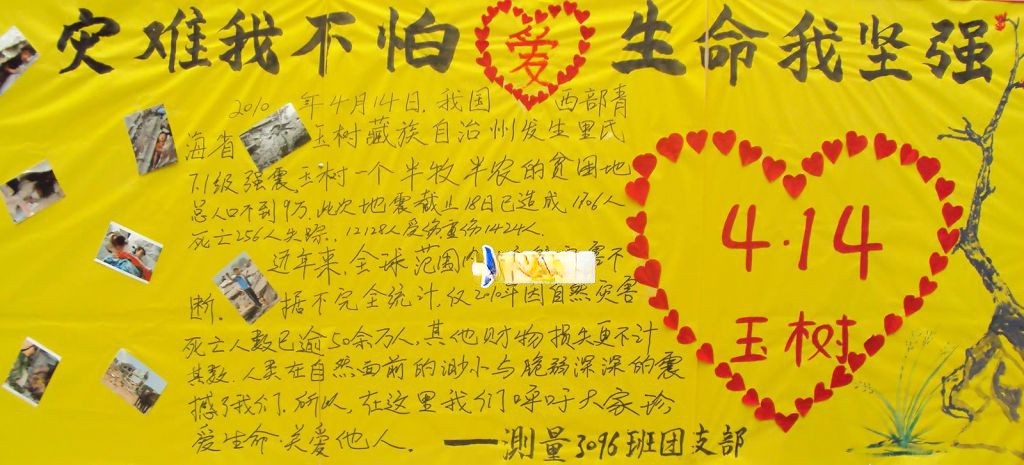 灾难我不怕 爱 生命我坚强
2010年4月14日,我国西部青
海省玉树藏族自治州发生里氏
7.1级强震玉树一个半牧半农的贫困地
总人口不到9万,此次地震截止18日已造成1706人
死亡256人失踪,12128人受伤重伤1424人.
近年来,全球范围内 不
断.据不完全统计,仅2010年因自然灾害
死亡人数已逾50余万人,其他财物损失更不计
其数.人类在自然面前的渺小与脆弱深深的震
撼了我们.所以,在这里我们呼吁大家珍
爱生命·关爱他人.
——测量3096班团支部
4.14
玉树